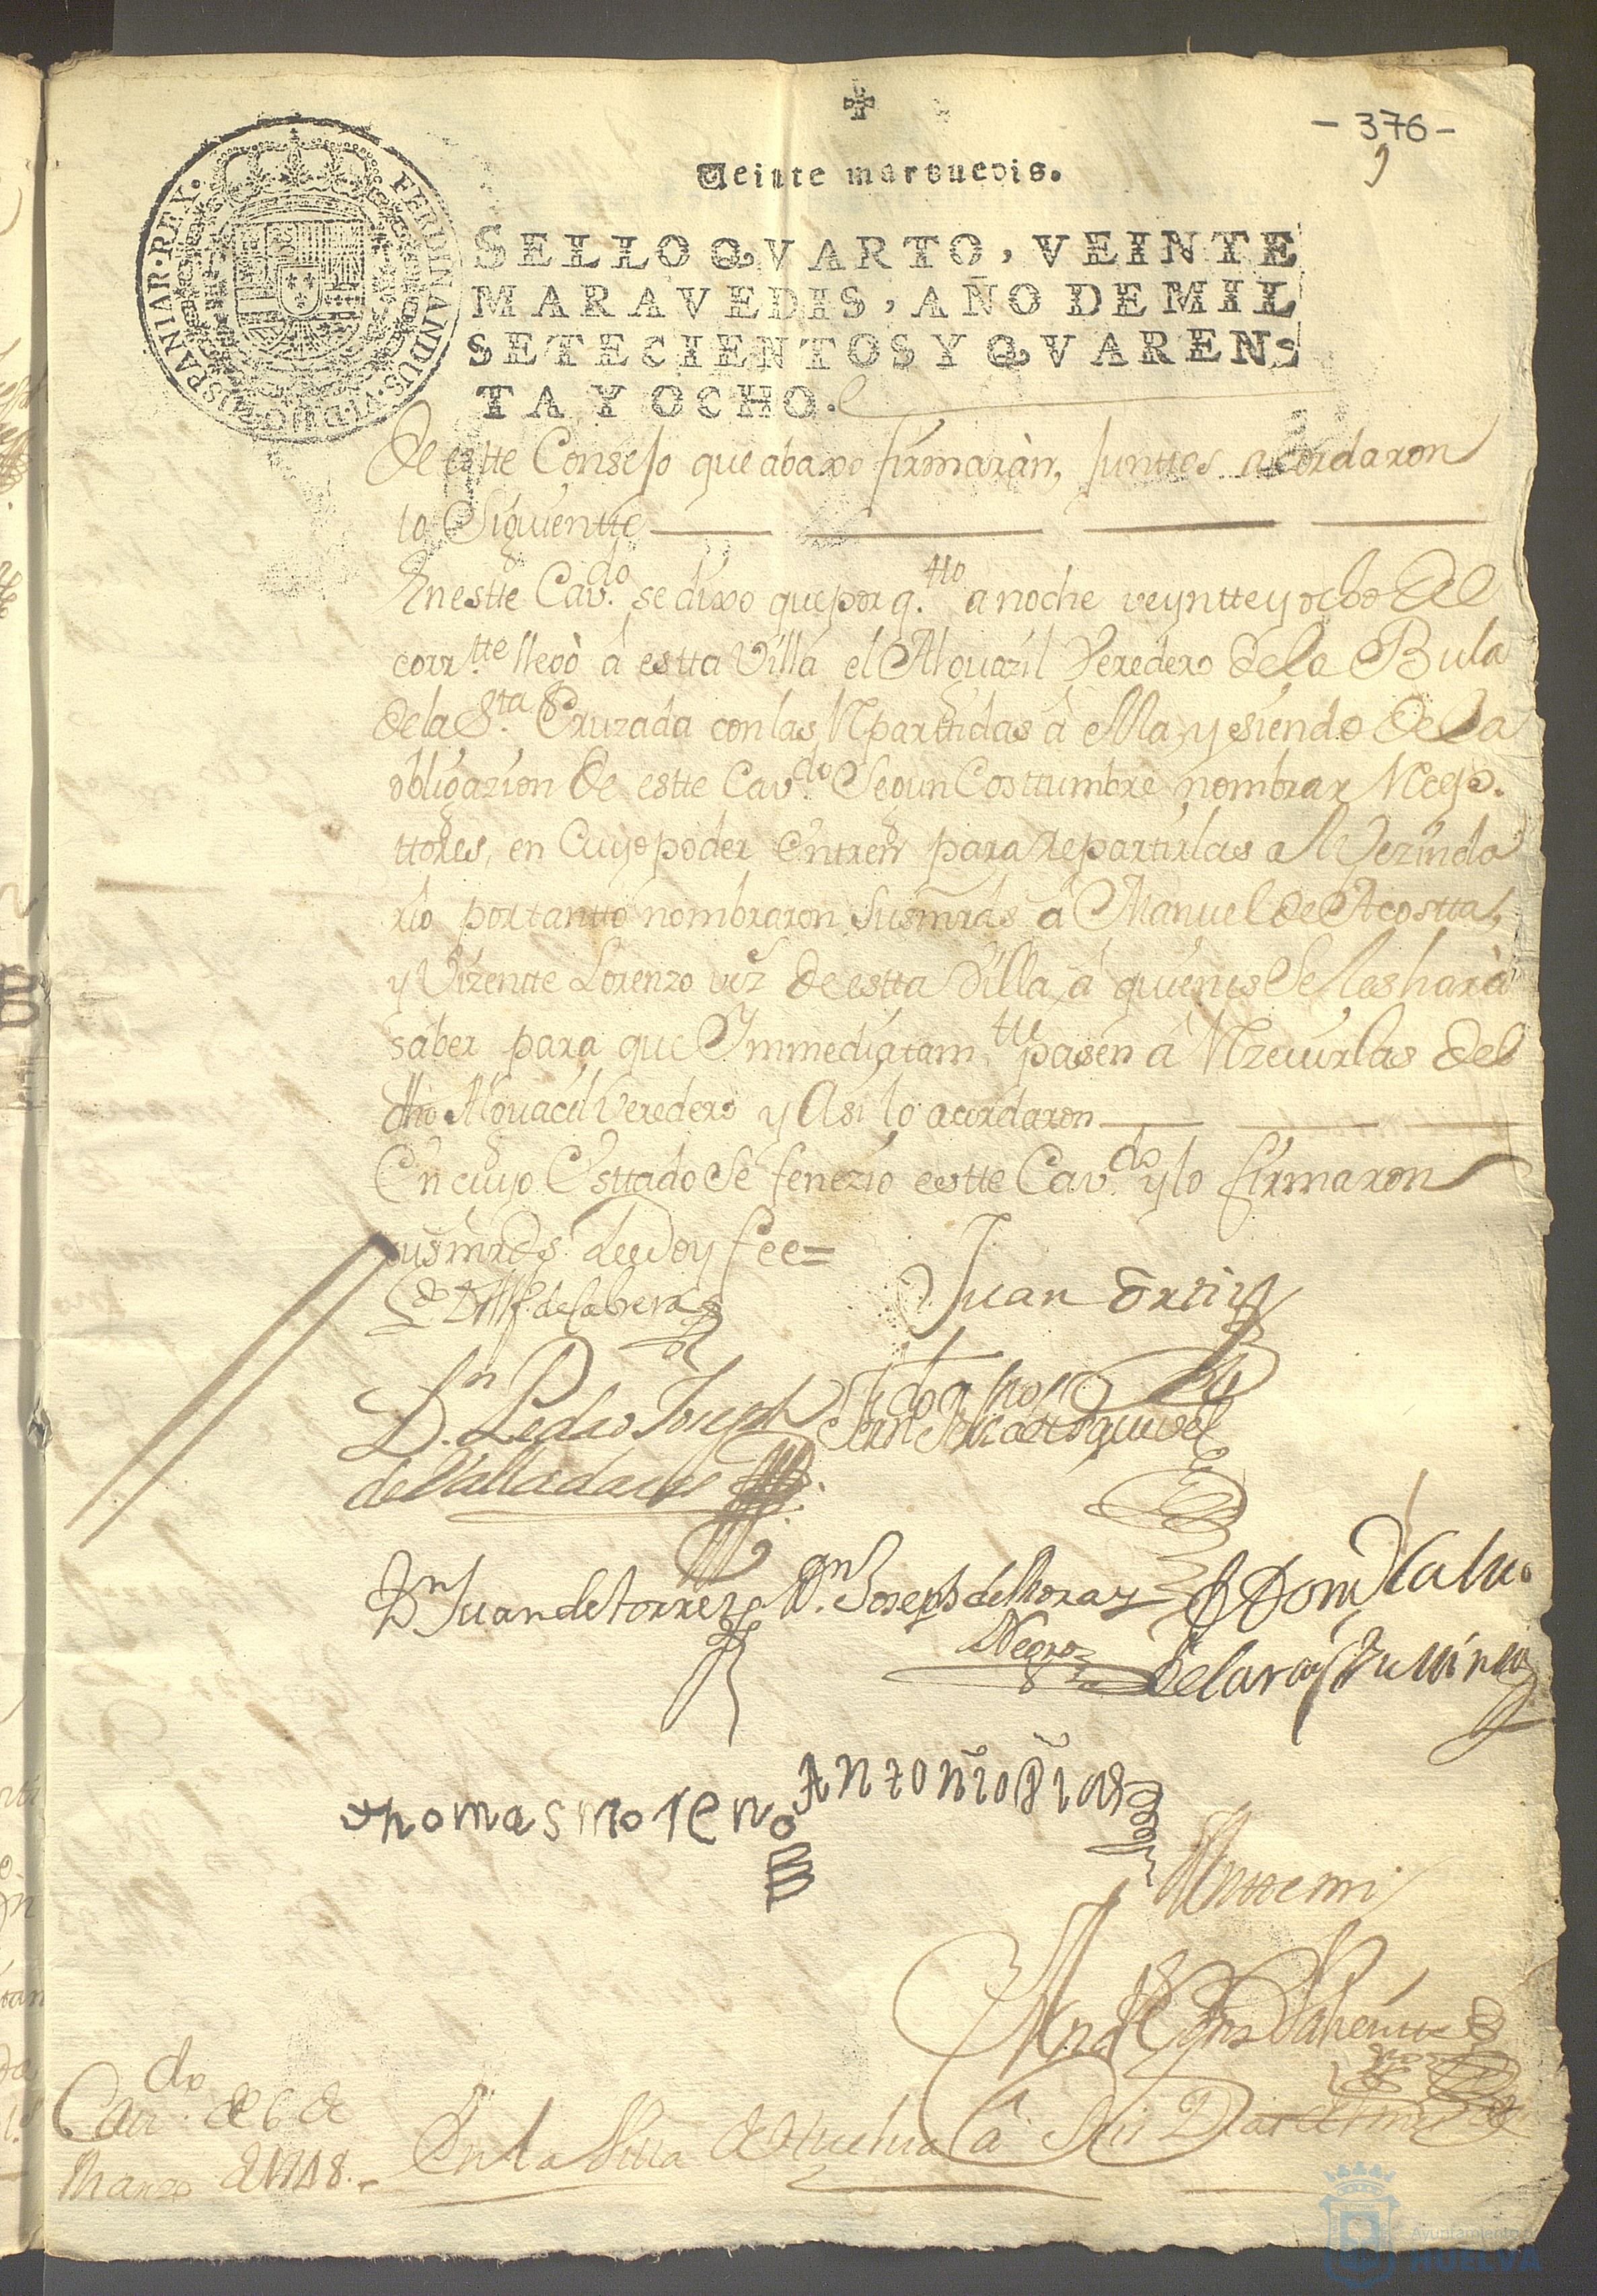 - 376 -
9
Veinte maravedis.
FERDINANDUS·VI·D·G·HISPANIAR·REX·
SELLO QVARTO, VEINTE
MARAVEDIS, AÑO DE MIL
SETECIENTOS Y QVAREN-
TA Y OCHO.
de estte Consejo que abaxo firmaràn, Junttos acordaron
lo Siguientte
En estte Cav.do se dixo que por q.tto a noche veyntte y ocho del
corr.tte llegò â estta Villa el Alguazil Veredero de la Bula
de la S.ta Cruzada con las Reparttidas â ella, y siendo de la
obligazion de estte Cav.do Segun Costtumbre nombrar Recep-
ttores, en Cuyo poder Entren para repartirlas al Vezinda
rio por tantto nombraron Susmrds â Manuel de Acostta,
y Vizentte Lorenzo vez.s de estta Villa, â quienes Se les harà
saber para que Immediatam.tte pasen â Rezevirlas del
dho Alguacil Veredero y Asi lo acordaron
En cuyo Esttado Se fenezio estte Cav.do y lo firmaron
susmrds. de q doy fee=
L.do D. Alf. de Cabrera
Juan Ortiz
D.n Pedro Joseph
de Valladares
D.n Juan de torres
D.n Joseph de Mora y
Negro
thomas moreno
Antonio Dias
Antte mi
Cav.do de 6 de
Marzo de 1748.
En la Villa de Huelva â Seis Dias del mes de
Ayuntamiento de
HUELVA